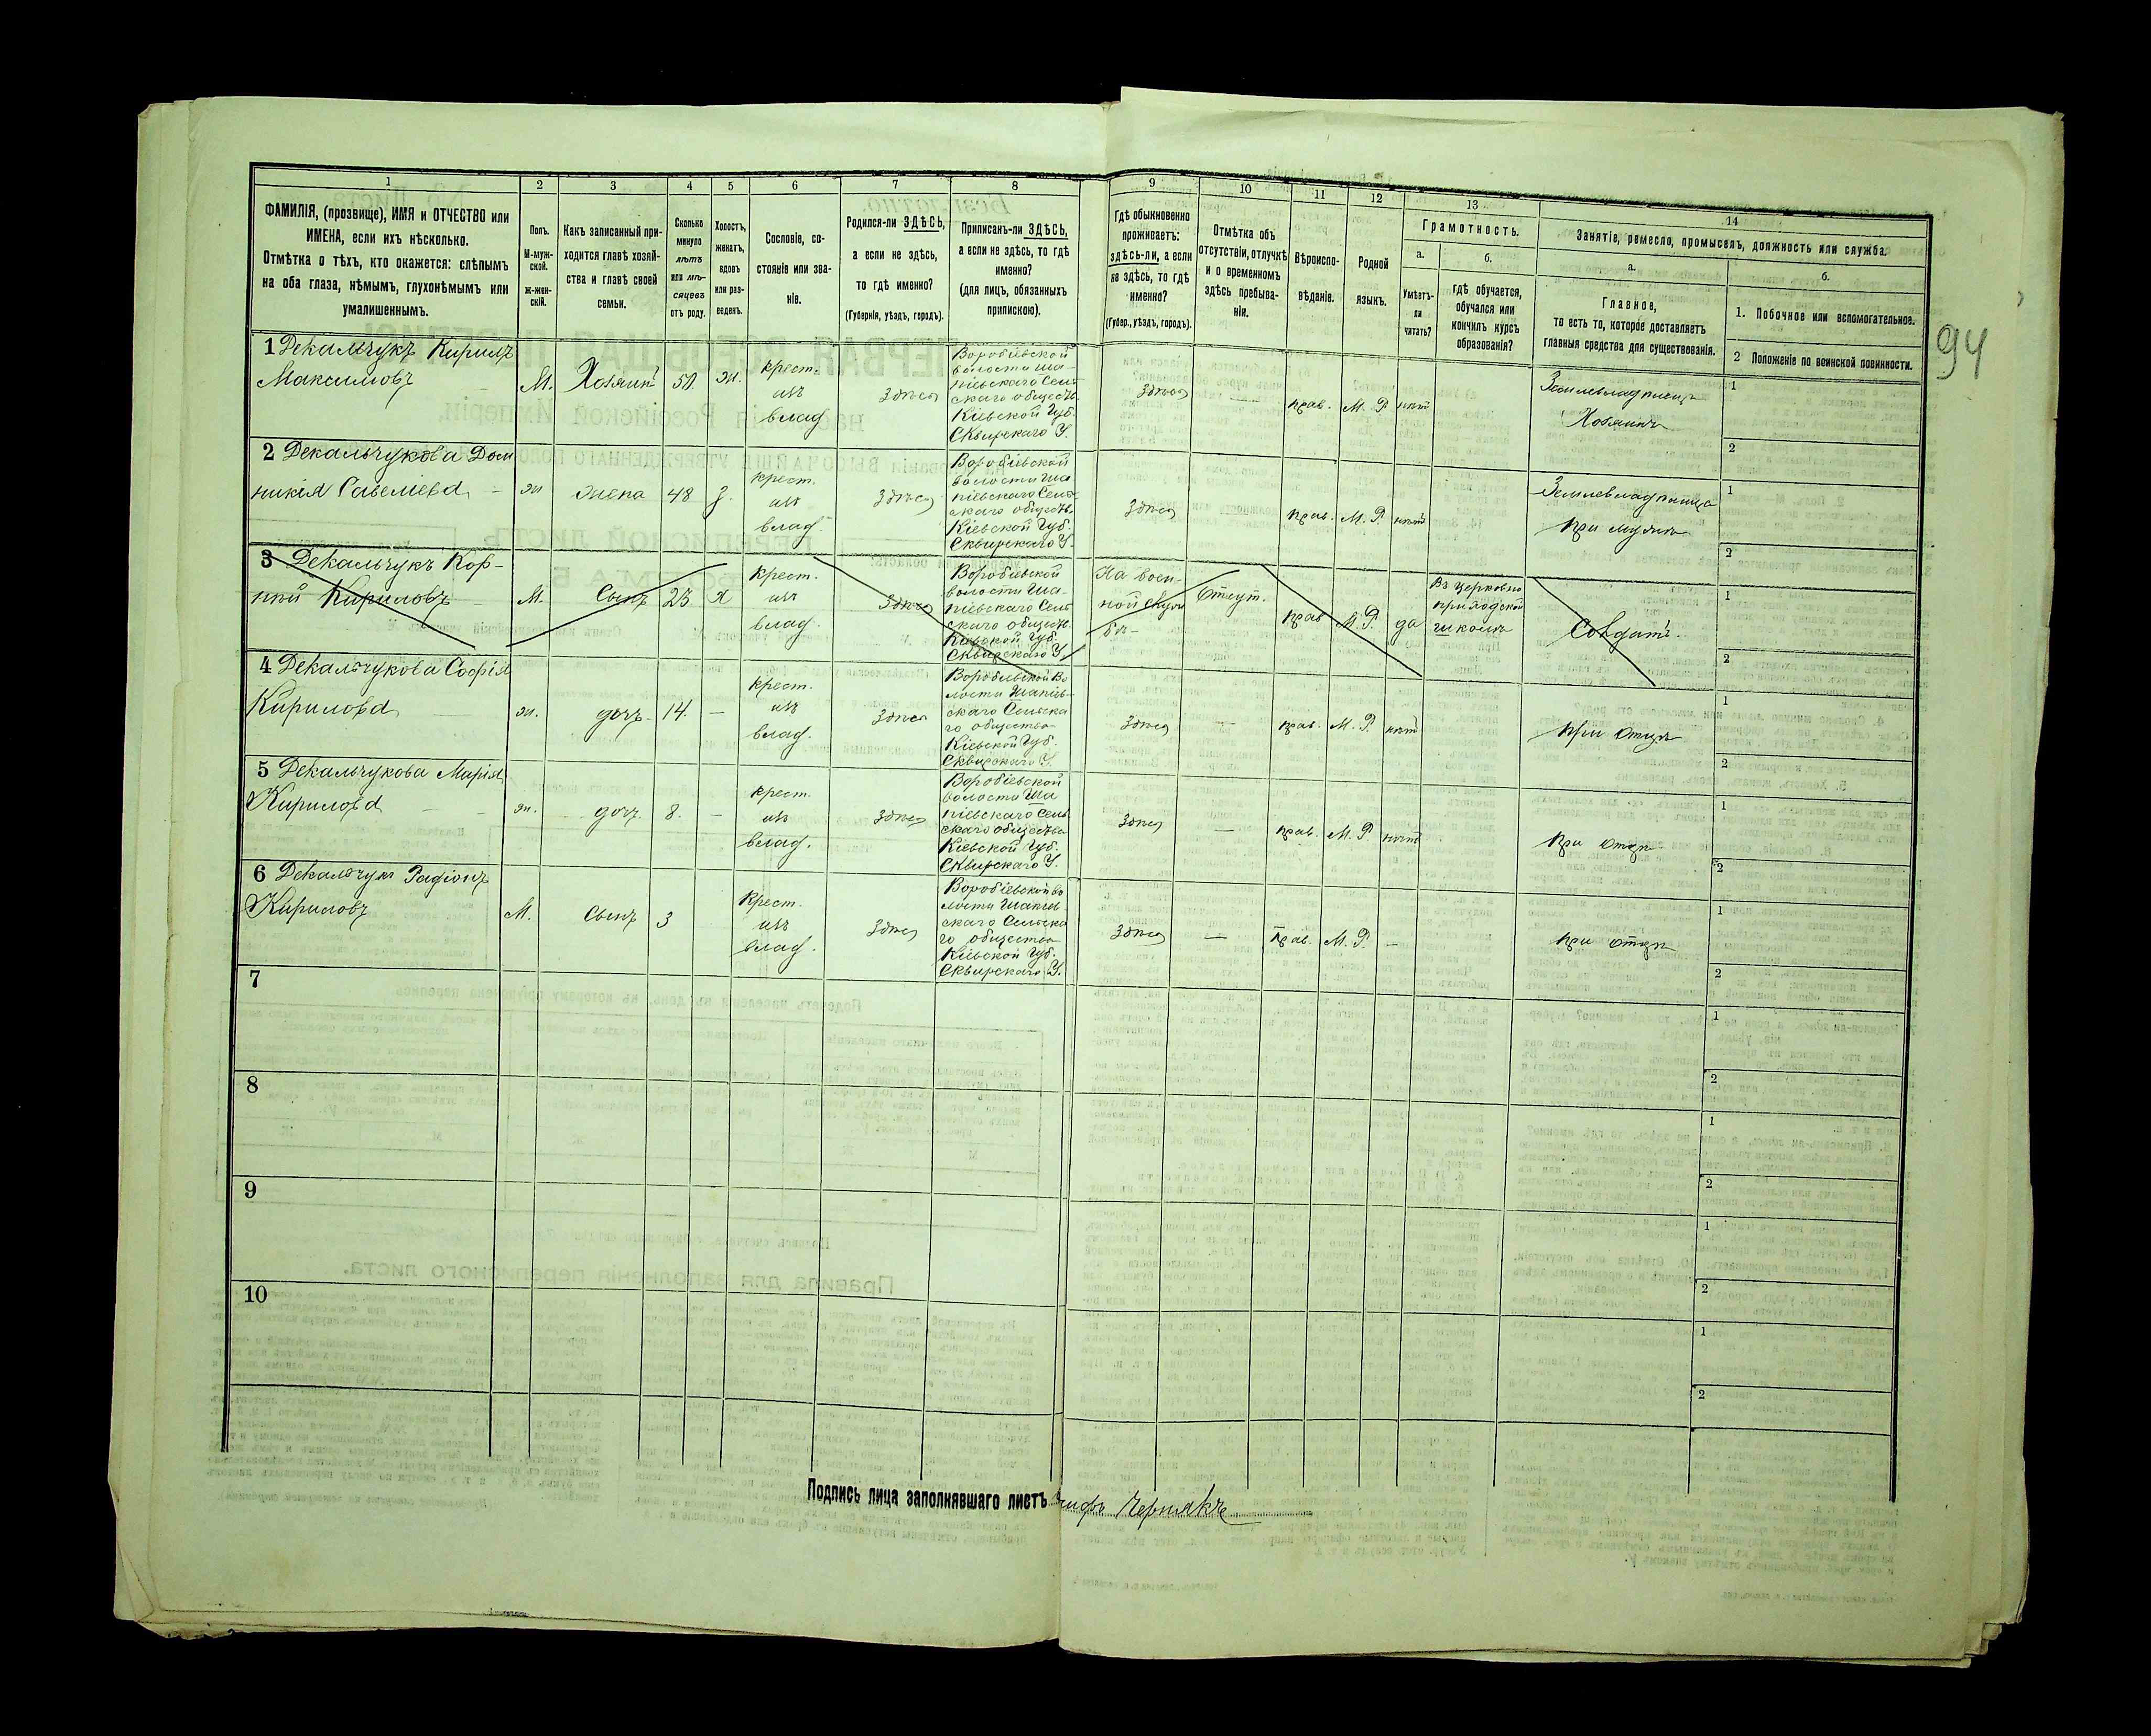 94
1
2
3
4
5
6
7
8
9
10
11
12
13
14
ФАМИЛІЯ, (прозвище), ИМЯ и ОТЧЕСТВО или
ИМЕНА, если ихъ нѣсколько.
Отмѣтка о тѣхъ, кто окажется: слѣпымъ
на оба глаза, нѣмымъ, глухонѣмымъ или
умалишеннымъ.
Полъ.
М-муж-
ской.
ж-жен-
скій.
Какъ записанный при-
ходится главѣ хозяй-
ства и главѣ своей
семьи.
Сколько
минуло
лѣтъ
или мѣ-
сяцевъ
отъ роду.
Холостъ,
женатъ,
вдовъ
или раз-
веденъ.
Сословіе, со-
стояніе или зва-
ніе.
Родился-ли ЗДѢСЬ,
а если не здѣсь,
то гдѣ именно?
(Губернія, уѣздъ, городъ).
Приписанъ-ли ЗДѢСЬ,
а если не здѣсь, то гдѣ
именно?
(для лицъ, обязанныхъ
припискою).
Гдѣ обыкновенно
проживаетъ:
здѣсь-ли, а если
не здѣсь, то гдѣ
именно?
(Губер., уѣздъ, городъ).
Отмѣтка объ
отсутствіи, отлучкѣ
и о временномъ
здѣсь пребыва-
ніи.
Вѣроиспо-
вѣданіе.
Родной
языкъ.
Грамотность.
а.
Умѣетъ-
ли
читать?
б.
гдѣ обучается,
обучался или
кончилъ курсъ
образованія?
Занятіе, ремесло, промыселъ, должность или служба.
а.
Главное,
то есть то, которое доставляетъ
главныя средства для существованія.
б.
1. Побочное или вспомогательное.
2 Положеніе по воинской повинности.
1 Декальчукъ Кирилъ
Максимовъ
М.
Хозяинъ
50.
ж.
крест.
изъ
влад
здѣсь
Воробіевской
волости Ша-
піевскаго Сель
скаго обществ.
Кіевской Губ.
Сквирскаго У.
здѣсь
—
прав.
М. Р.
нѣтъ
Землевладѣлецъ
Хозяинъ
1
2
2 Декальчукова Дом
никія Савеліева
ж
жена
48
з.
крест.
изъ
влад.
здѣсь
Воробіевской
волости Ша
піевскаго Сель
скаго обществ.
Кіевской Губ.
Сквирскаго У.
здѣсь
прав.
М. Р.
нѣтъ
при мужѣ
1
2
3 Декальчукъ Кор-
ній Кириловъ
М.
Сынъ
23
Х
крест.
изъ
влад.
здѣсь
Воробіевской
волости Ша-
піевскаго Сель
скаго обществ.
Кіевской Губ.
Сквирскаго У.
На воен-
ной служ
бѣ-
Отсут.
прав
М. Р.
да
Въ церковно
приходской
школѣ
Солдатъ.
1
2
4 Декальчукова Софія
Кирилова
ж.
дочь
14.
—
крест.
изъ
влад.
здѣсь
Воробіевской Во
лости Шапіев-
скаго Сельска
го общества
Кіевской Губ.
Сквирскаго У.
здѣсь
—
прав.
М. Р.
нѣтъ
при отцѣ
1
2
5 Декальчукова Марія
Кирилова
ж.
дочь
8.
—
крест.
изъ
влад.
здѣсь
Воробіевской
волости Ша
піевскаго Сель
скаго общества
Кіевской Губ.
Сквирскаго У.
здѣсь
—
прав.
М. Р.
нѣтъ
при отцѣ
1
2
6 Декальчукъ Радіонъ
Кириловъ
М.
Сынъ
3
Крест.
изъ
влад.
здѣсь
Воробіевской во
лости Шапіев
скаго Сельска
го общества
Кіевской Губ.
Сквирскаго У.
здѣсь
—
прав.
М. Р.
—
при отцѣ
1
2
7
1
2
8
1
2
9
1
2
10
1
2
Подпись лица заполнявшаго листъ
Чернякъ